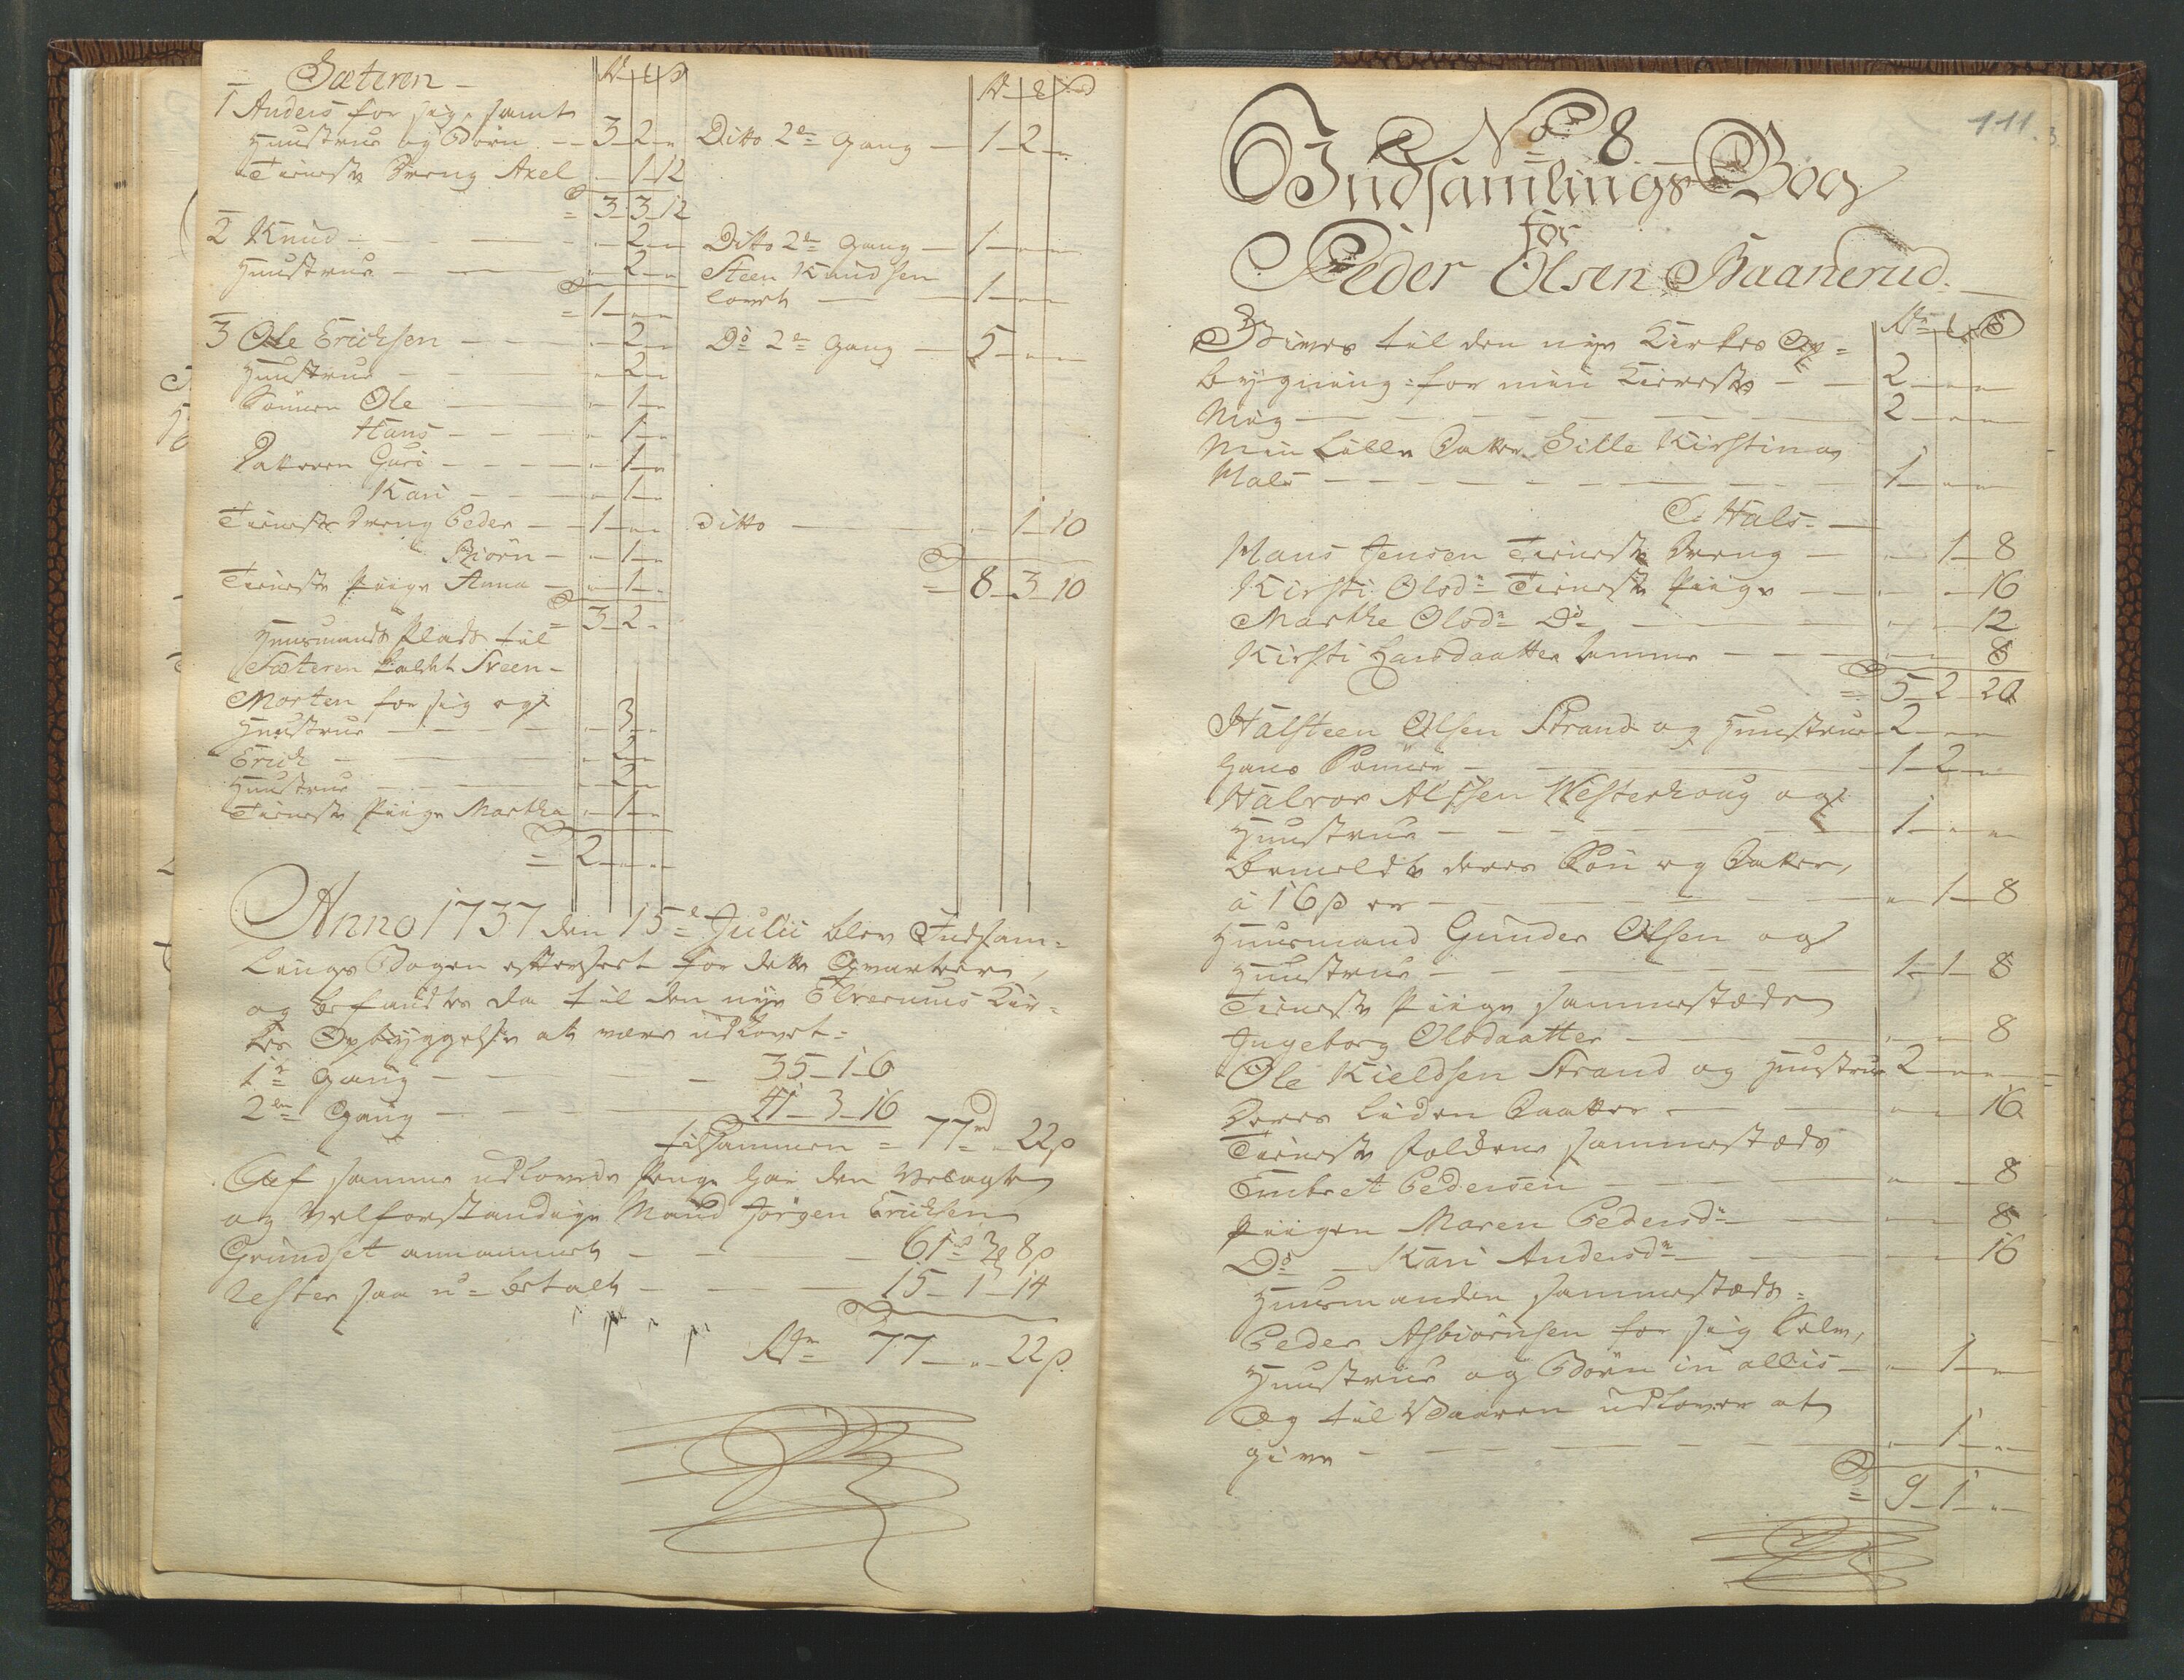 Sæteren
1 Anders for sig, samt
Huustrue og Börn - 3 - 2 - " Ditto 2de Gang - 1 - 2 - "
Tieneste Dreng Axel " - 1 - 12
= 3 - 3 - 12
2 Knud - " - 2 - " Ditto 2de Gang - 1 - " - "
Huustrue - " - 2 - " Steen Knudsen
= 1 - " - " lovet - 1 - " - "
3 Ole Erichsen - " - 2 - " Do 2de Gang - 5 - " - "
Huustrue - " - 2 - "
Sönnen Ole - " - 1 - "
Hans - " - 1 - "
Datteren Guri - " - 1 - "
Kari - " - 1 - "
Tieneste Dreng Peder - 1 - " - " Ditto - " - 1 - 10
Biörn - " - 1 - "
Tieneste Piige Anna - " - 1 - " = 8 - 3 - 10
= 3 - 2 - "
Huusmands Plads til
Sæteren kaldet Sveen -
Morten for sig og
Huustrue - " - 3 - "
Erich - " - 2 - "
Huustrue - " - 2 - "
Tieneste Piige Martha " - 1 - "
= 2 - " - "
Anno 1737 den 15de Julii blev Indsam=
lings Bogen efterseet for dette Qvarteer,
og befandtes da til den nye Elverums Kir=
kes Opbyggelse at være udlovet =
1te Gang - 35 - 1 - 6
2den Gang - 41 - 3 - 16
tilsammen = 77 rd " 22 β
Af samme udlovede Penge har den Velagte
og Velforstandige Mand Jörgen Erichsen
Grundset annammet - 61 - 3 - 8 β
Rester saa u=betalt - 15 - 1 - 14
Rdr 77 - " - 22 β.
111.
No 8
Indsamlings Bog
for
Peder Olsen Baanerud.
Gives til den nye Kirkes Op=
bygning: for min Kiereste - 2 - " - "
Mig - 2 - " - "
Min Lille Datter Sille Kirstina
Hals - 1 - " - "
C: Hals. -
Hans Jensen Tieneste Dreng - " - 1 - 8
Kirsti Olsdr Tieneste Piige - " - " - 16
Marthe Olsdr Do - " - " - 12
Kirsti Larsdaatter Amme - " - " - 8
= 5 - 2 - 20
Halsteen Olsen Strand og Huustrue 2 - " - "
Hans Sönner - 1 - 2 - "
Halvor Alfsen Westerhaug og
Huustrue - 1 - " - "
bemeldte deres Sön og Datter,
á 16 β er - " - 1 - 8
Huusmand Gunder Olsen og
Huustrue - 1 - 1 - 8
Tieneste Piige sammestæds
Ingeborg Olsdaatter - " - " - 8
Ole Kieldsen Strand og Huustrue 2 - " - "
Deres Liden Daatter - " - " - 16
Tieneste Folkene sammestæds
Embret Pedersen - " - " - 8
Piigen Maren Pedersdr - " - " - 8
Do - Kari Andersdr - " - " - 16
Huusmanden sammestæds =
Peder Asbiörnsen for sig Selv,
Huustrue og Börn in alles - " - 1 - "
Og til Vaaren udlover at
give - " - 1 - "
= 9 - 1 - "